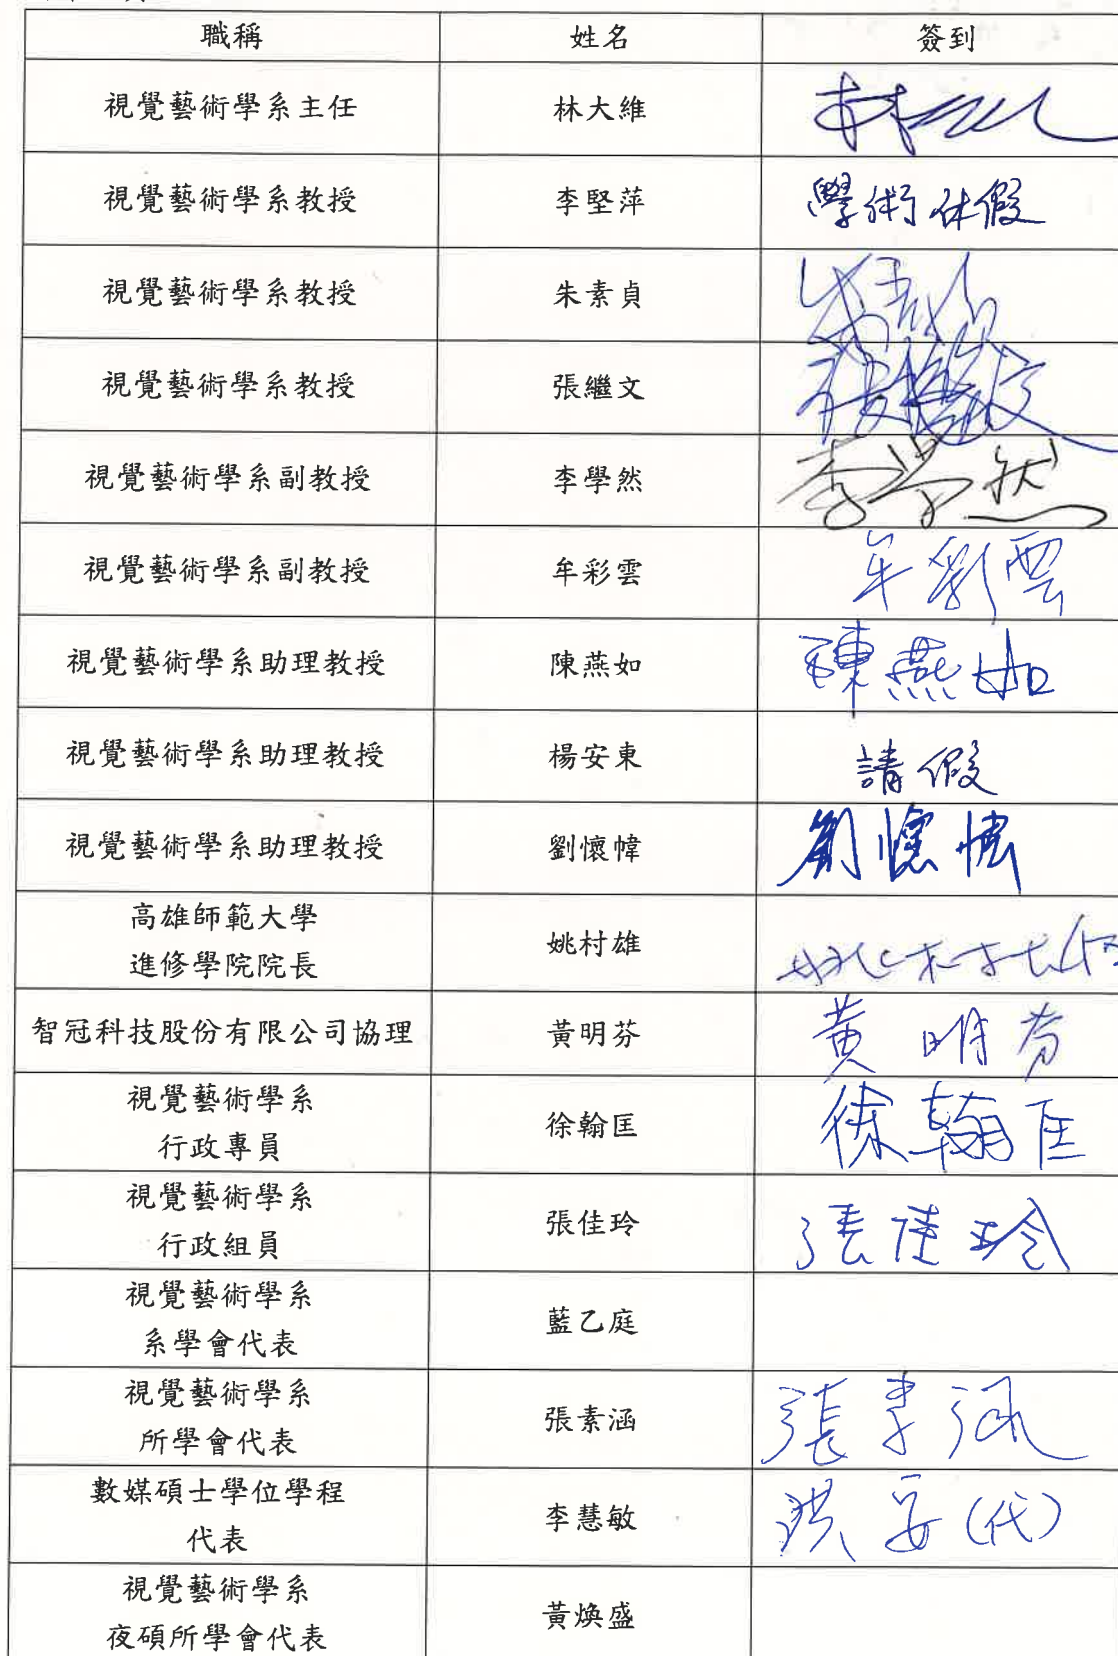 職稱 姓名 簽到
視覺藝術學系主任 林大維 林
視覺藝術學系教授 李堅萍 學術休假
視覺藝術學系教授 朱素貞
視覺藝術學系教授 張繼文 張繼文
視覺藝術學系副教授 李學然 李学然
視覺藝術學系副教授 牟彩雲 牟彩雲
視覺藝術學系助理教授 陳燕如 陳燕如
視覺藝術學系助理教授 楊安東 請假
視覺藝術學系助理教授 劉懷幃 劉懷幃
高雄師範大學
進修學院院長 姚村雄 姚村雄
智冠科技股份有限公司協理 黃明芬 黃明芬
視覺藝術學系
行政專員 徐翰匡 徐翰匡
視覺藝術學系
行政組員 張佳玲 張佳玲
視覺藝術學系
系學會代表 藍乙庭
視覺藝術學系
所學會代表 張素涵 張素涵
數媒碩士學位學程
代表 李慧敏 (代)
視覺藝術學系
夜碩所學會代表 黃煥盛